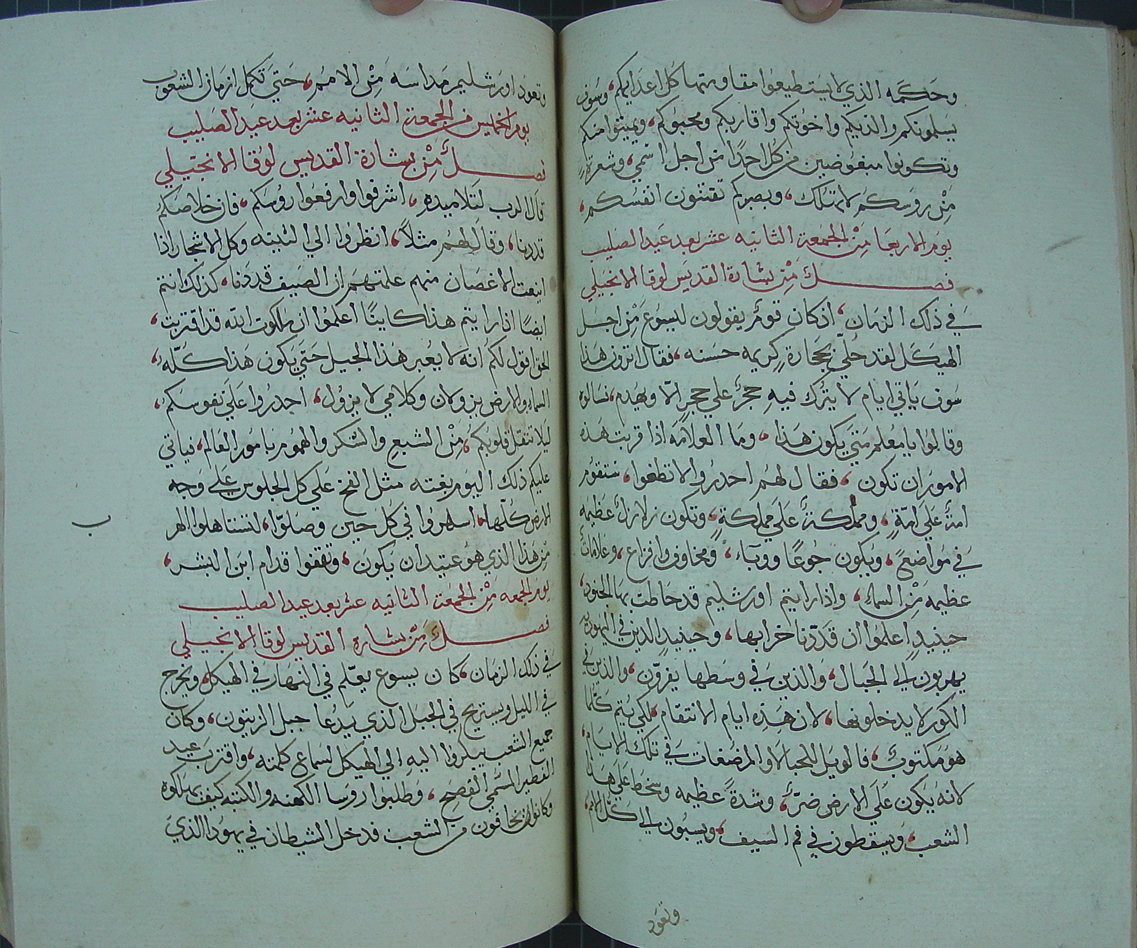 وحكمه الذي لا يستطيعوا مقاومتها كل اعدايكم، وسوف
يسلمونكم والديكم واخوتكم واقاربكم ومحبوكم، ويميتوا منكم
وتكونوا مبغوضين من كل احد من اجل اسمي، وشعرة
من روسكم لا تهلك، وبصبركم تقتنون انفسكم،
يوم الاربعا من الجمعة الثانيه عشر بعد عيد الصليب
فصل من بشارة القديس لوقا الانجيلي
في ذلك الزمان، اذ كان قوم يقولون ليسوع من اجل
الهيكل لقد حلي بحجارة كريمه حسنه، فقال اترون هذا
سوف ياتي ايام لا يترك فيه حجر على حجر الا ويهدم، نسالوه
وقالوا يا معلم متى يكون هذا، وما العلامه اذا قربت هذه
الامور ان تكون، فقال لهم احدروا لا تطغوا، ستقوم
امة على امة، ومملكة على مملكة، وتكون زلازل عظيمه
في مواضع، ويكون جوعا ووباء، ومخاوف وافزاع، وعلامات
عظيمه من السماء، واذا رايتم اورشليم قد حاطت بها الجنود،
حينيد اعلموا ان قد دنا خرابها، وحينيد الذين في اليهوديه
يهربون الى الجبال، والذين في وسطها يفرون، والذين في
الكور لا يدخلونها، لان هذه ايام الانتقام، لكي يتم كلما
هو مكتوب، فالويل للحبالا والمرضعات في تلك الايام،
لانه يكون على الارض ضر، وشدة عظيمه وسخط على هذا
الشعب، ويسقطون في فم السيف، ويسبون الى كل الامم،
وتعود
وتعود اورشليم مداسه من الامم، حتى تكمل ازمان الشعوب
يوم الخميس من الجمعة الثانيه عشر بعد عيد الصليب
فصل من بشارة القديس لوقا الانجيلي
قال الرب لتلاميده، اشرفوا وارفعوا روسكم، فان خلاصكم
قد دنا، وقال لهم مثلا، انظروا الي التينه وكل الاشجار اذا
اينعت الاغصان منهم علمتهم ان الصيف قد دنا، كذلك انتم
ايضا اذا رايتم هذا كاينا اعلموا ان ملكوت الله قد اقتربت،
الحق اقول لكم انه لا يعبر هذا الجيل حتى يكون هذا كله،
السماء والارض يزولان وكلامي لا يزول، احدروا على نفوسكم،
ليلا تثقل قلوبكم، من الشبع والسكر والهموم بامور العالم، فياتي
عليكم ذلك اليوم بغته مثل الفخ علي كل الجلوس على وجه
الارض كلها، اسهروا في كل حين وصلوا، لتستاهلوا الهرب
من هذا الذي هو عتيد ان يكون، وتقفوا قدام ابن البشر،
يوم الجمعه من الجمعة الثانيه عشر بعد عيد الصليب
فصل من بشارة القديس لوقا الانجيلي
في ذلك الزمان، كان يسوع يعلم في النهار في الهيكل، ويخرج
في الليل ويستريح في الجبل الذي يدعا جبل الزيتون، وكان
جميع الشعب يبكروا اليه الي الهيكل لسماع كلمته، واقترب عيد
الفطير المسمى الفصح، وطلبوا روسا الكهنه والكتبه كيف يهلكوه
وكانوا يخافون من الشعب قد دخل الشيطان في يهودا الذي